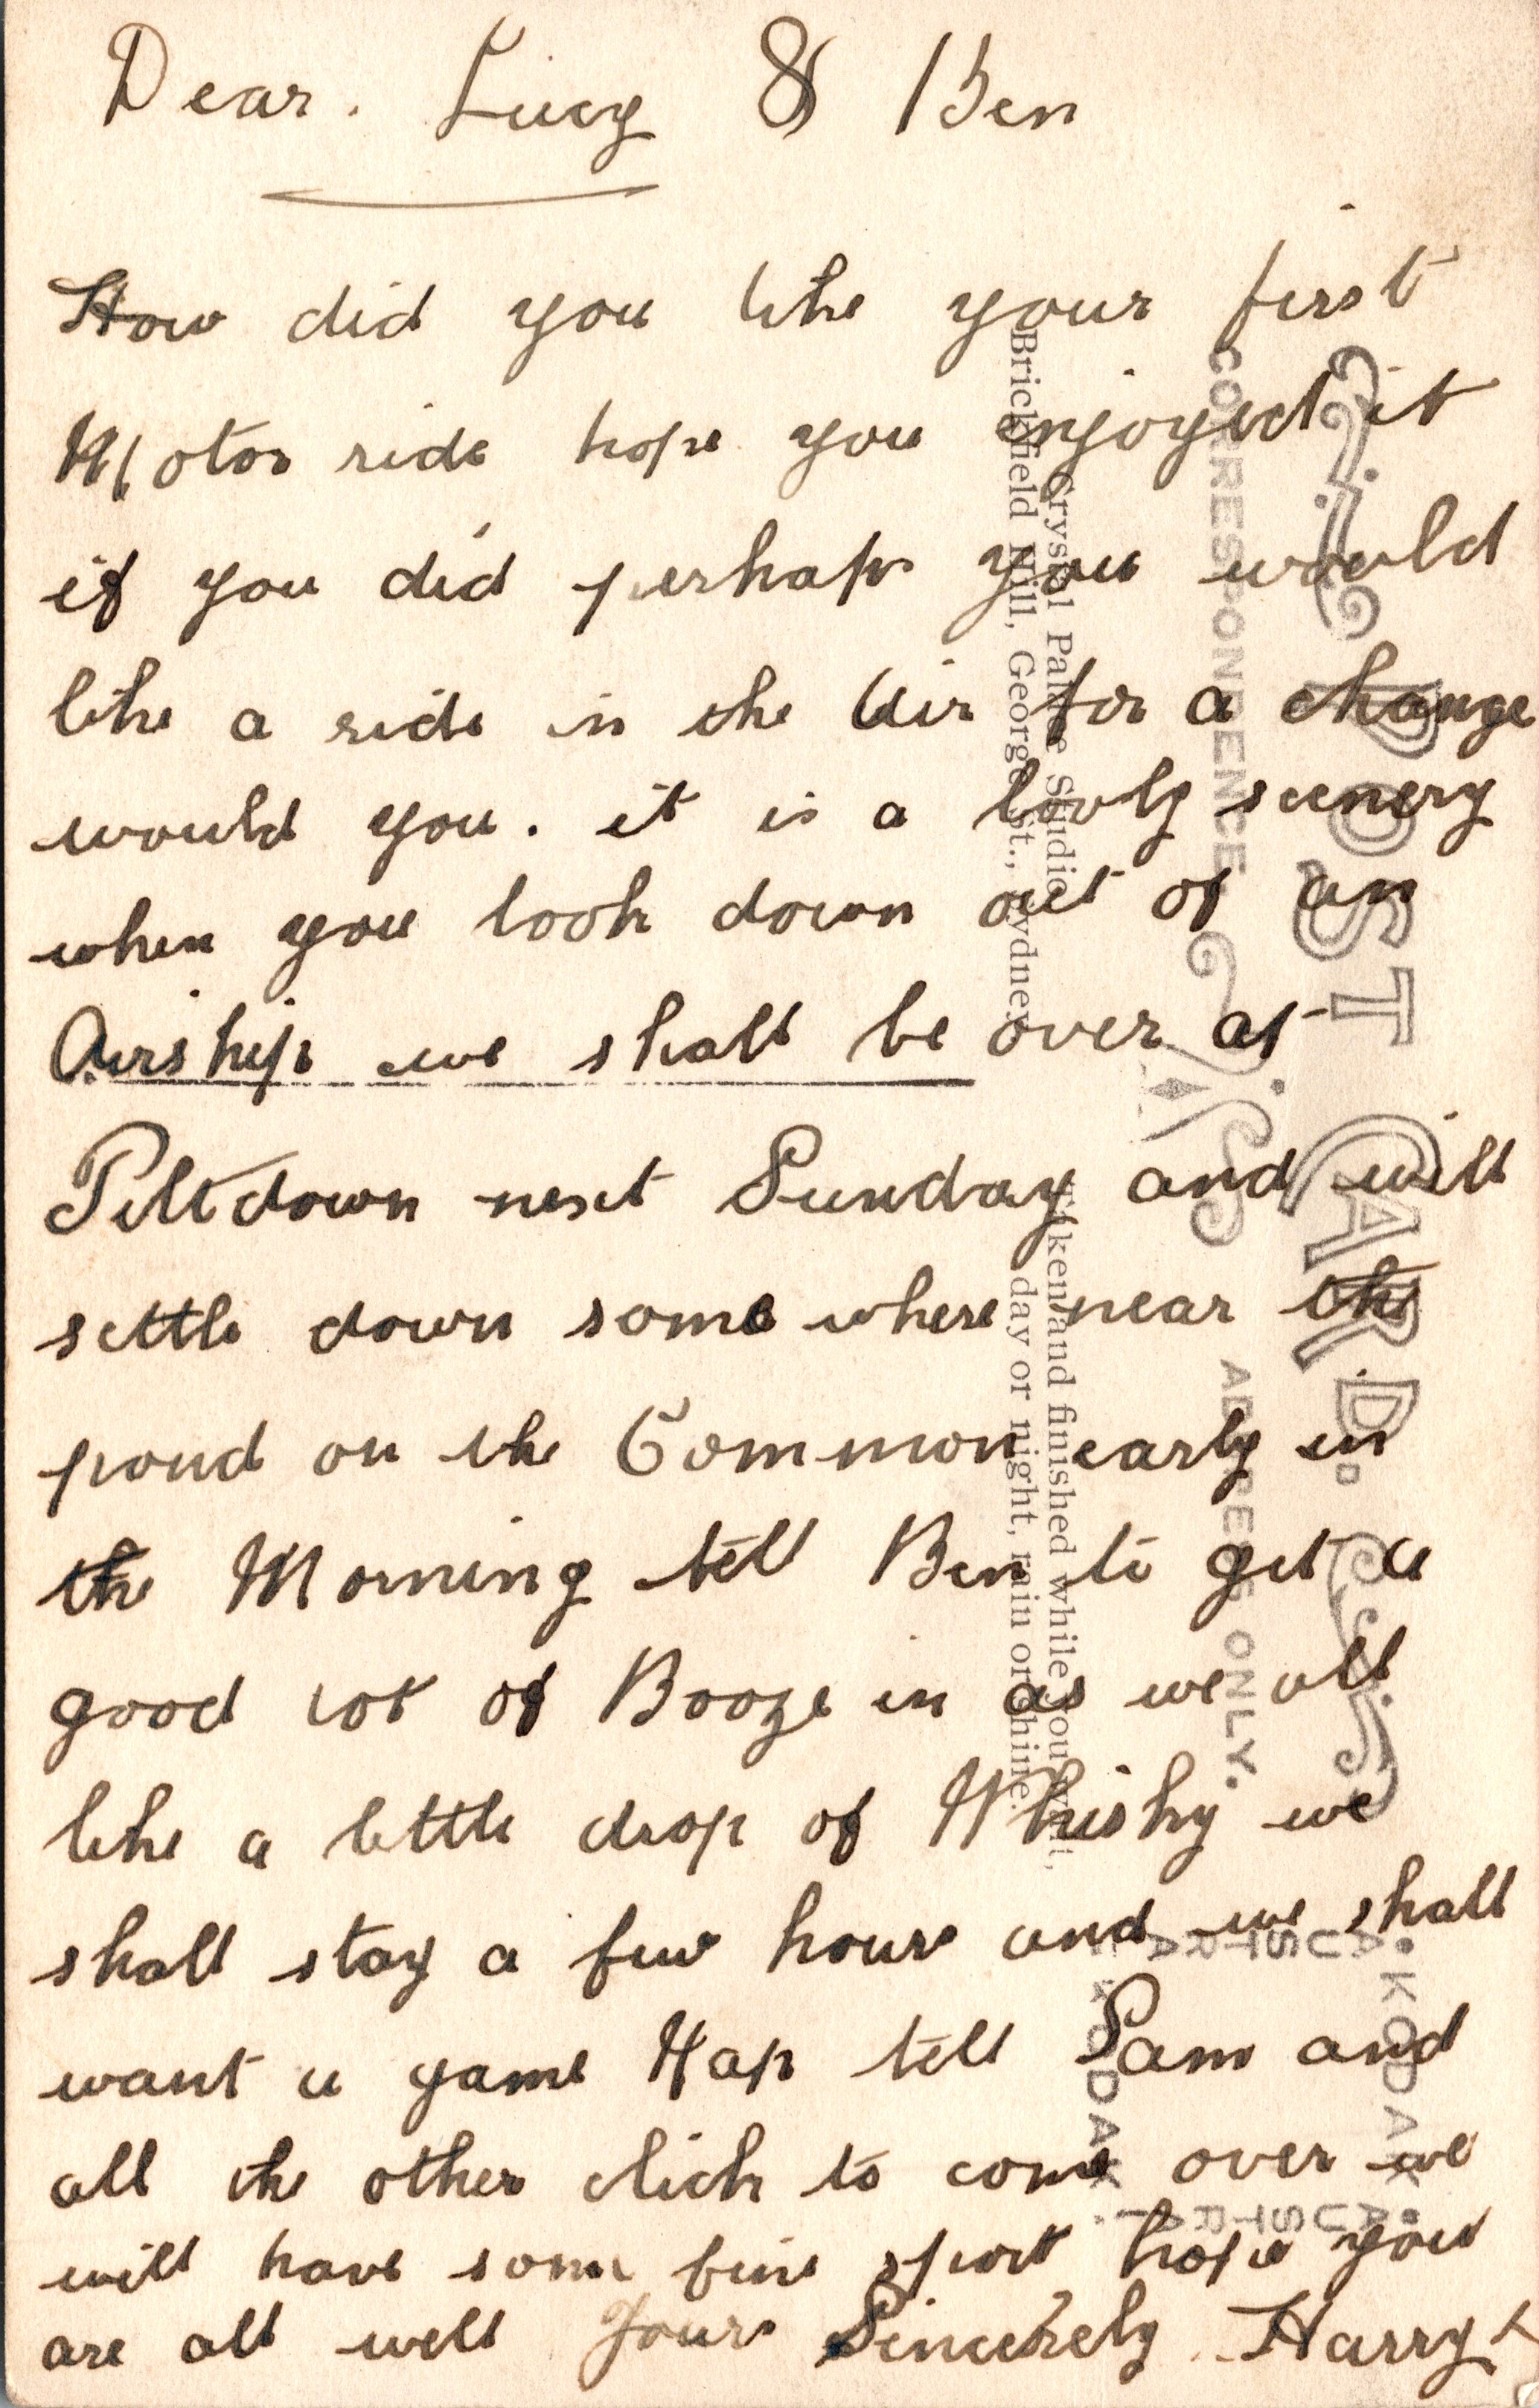 Dear. Lucy & Ben
How did you like your first
Motor ride hope you enjoyed it
if you did perhaps you would
like a ride in the Air for a change
would you. it is a lovly scenery
when you look down out of an
Airship we shall be over at
Piltdown next Sunday and will
settle down some where near the
pond on the Common early in
the Morning tell Ben to get a
good lot of Booze in as we all
like a little drop of Whisky we
shall stay a few hours and we shall
want a game Nap tell Sam and
all the other click to come over we
will have some fine sport hope you
are all well Yours Sincerely Harry
POST CARD.
CORRESPONDENCE
ADDRESS ONLY.
Crystal Palace Studio,
Brickfield Hill, George St., Sydney
Taken and finished while you wait,
day or night, rain or shine.
KODAK
AUSTRA
KODAK
AUSTRA